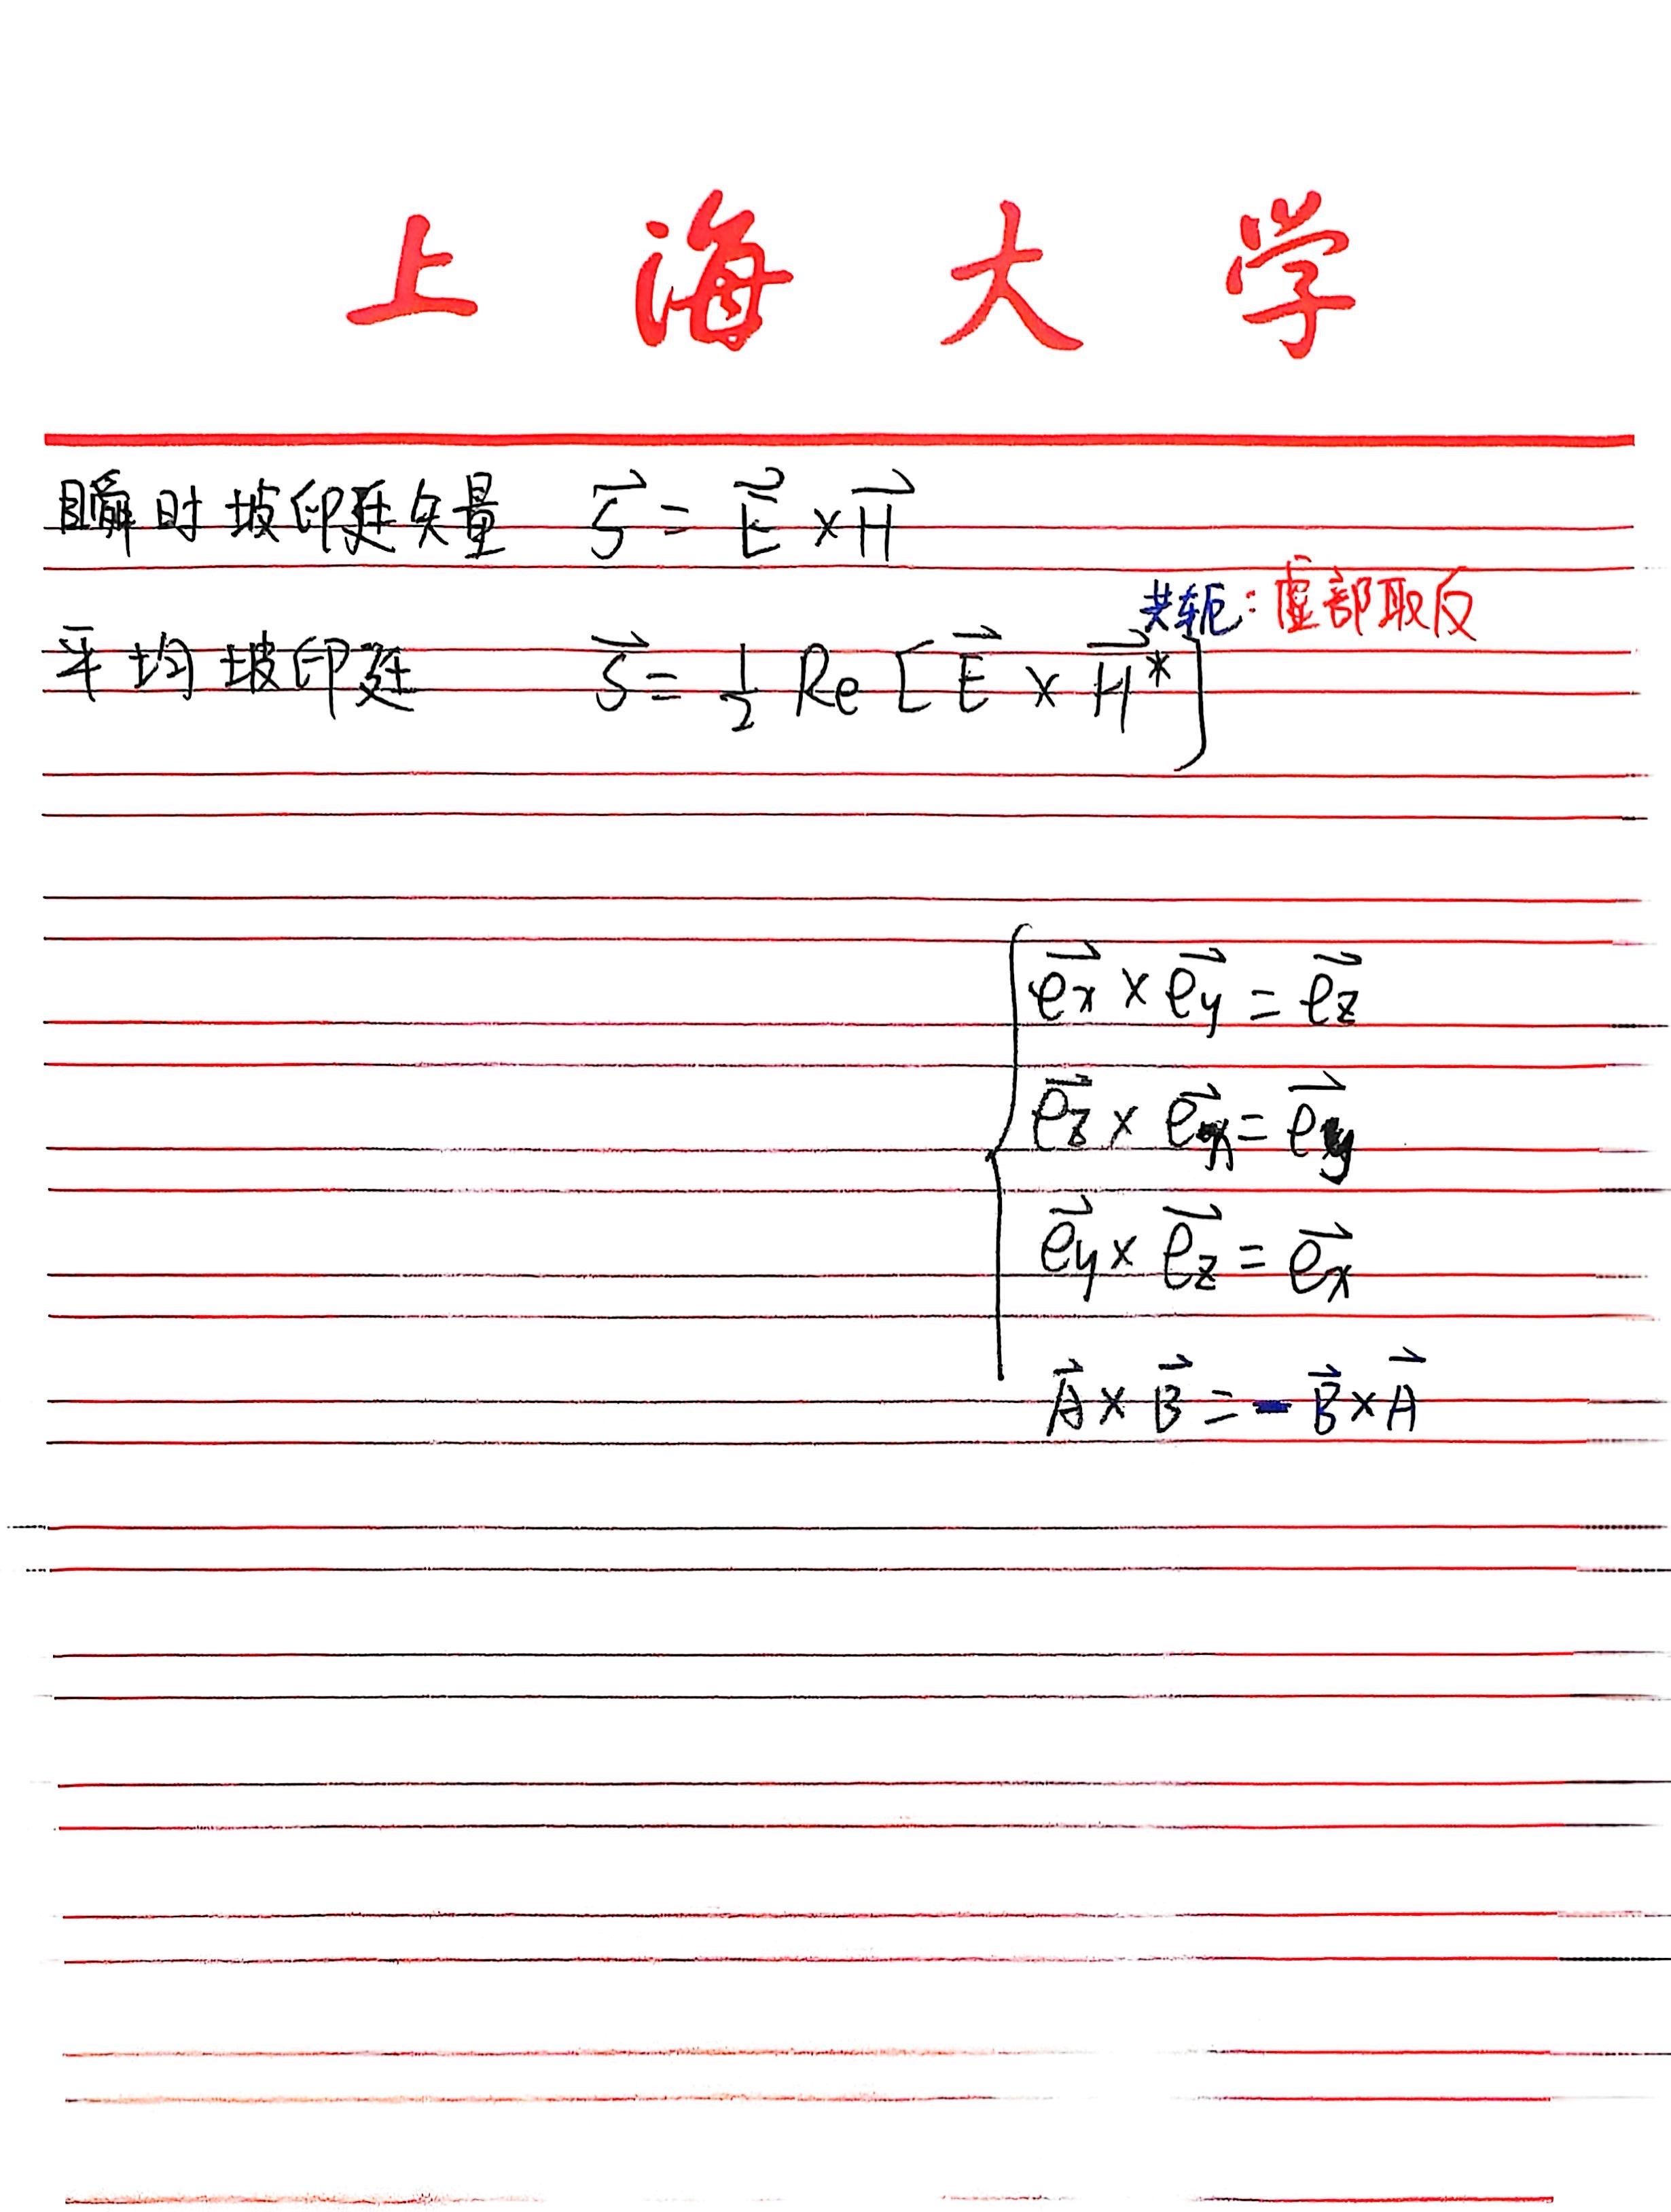 上海大学
瞬时坡印廷矢量 $\vec{S} = \vec{E} \times \vec{H}$
共轭：虚部取反
平均坡印廷 $\vec{S} = \frac{1}{2} Re [\vec{E} \times \vec{H}^*]$
$\vec{e_x} \times \vec{e_y} = \vec{e_z}$
$\vec{e_z} \times \vec{e_x} = \vec{e_y}$
$\vec{e_y} \times \vec{e_z} = \vec{e_x}$
$\vec{A} \times \vec{B} = - \vec{B} \times \vec{A}$